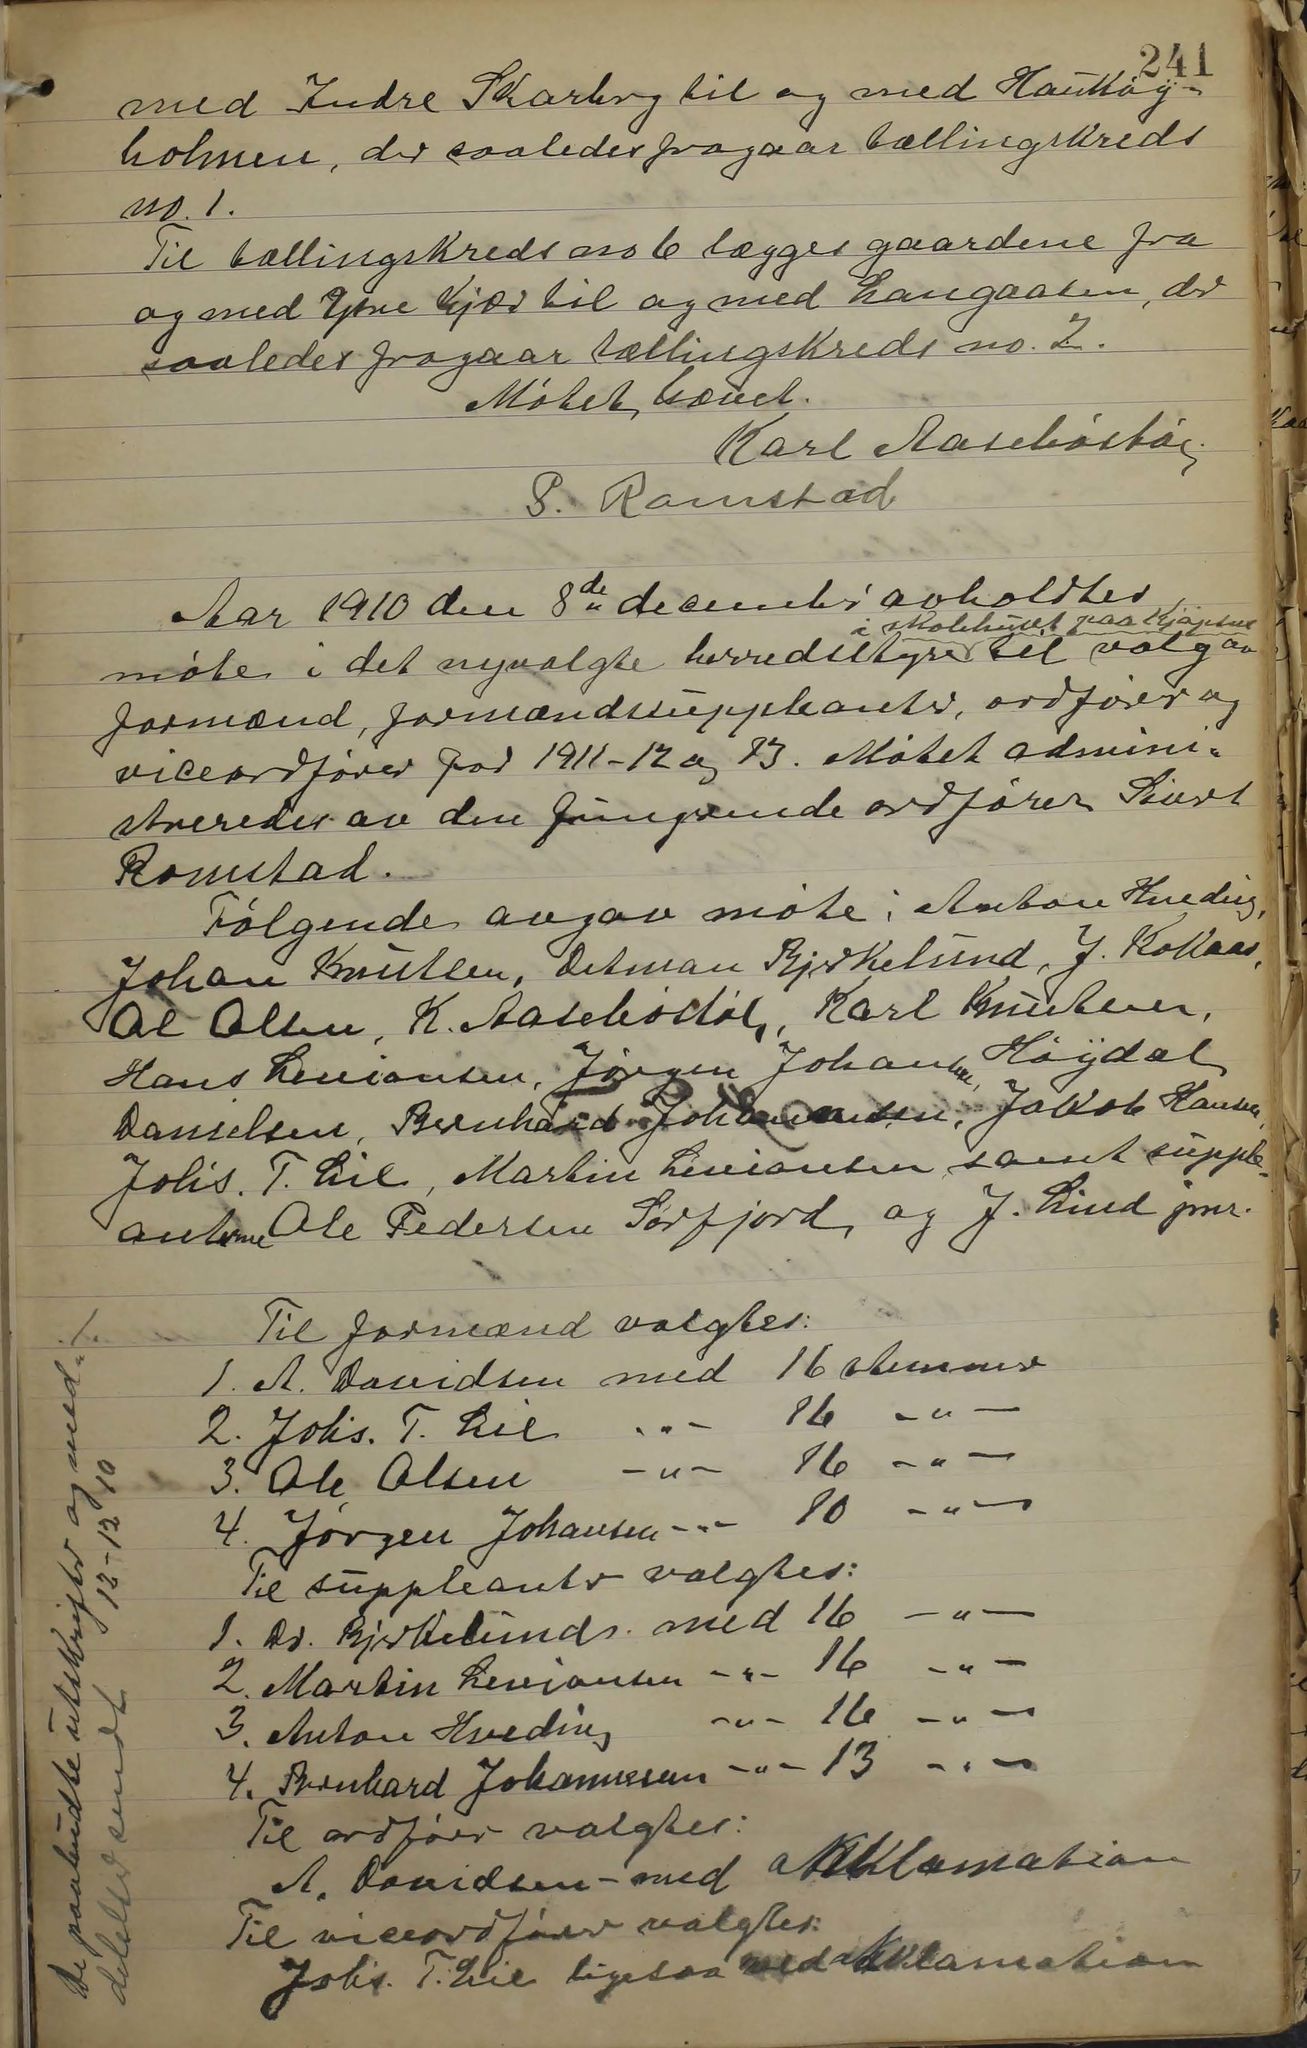 241
med Indre Skarberg til og med Haukøy-
holmen, der saaledes fragaar tællingskreds
no. 1.
Til tællingskreds no 6 lægges gaardene fra
og med Øvre Kjær til og med Langaasen, der
saaledes fragaar tællingskreds no. 2.
Møtet hævet.
Karl Aasebøstøl
S. Ramstad
Aar 1910 den 8de december avholdtes
i skolehuset paa Kjøpsnes
møte i det nyvalgte herredsstyre til valg av
formænd, formændssuppleanter, ordfører og
viceordfører for 1911-12 og 13. Møtet admini-
streredes av den fungerende ordfører Sivert
Romstad.
Følgende avgav møte: Anton Hveding,
Johan Knutsen, Detman Bjerkelund, J. Kokaas,
Ol Olsen, K. Aasebøstøl, Karl Knutsen,
Hans Leviansen, Jørgen Johansen, Høydal
Danielsen, Bernhard Johannesen, Jakob Hansen,
Johs. T. Lil, Martin Leviansen samt supple-
anterne Ole Pedersen Sørfjord, og J. Lind jnr.
Til formænd valgtes:
1. A. Davidsen med 16 stemmer
2. Johs. T. Lil -"- 16 -"-
3. Ole Olsen -"- 16 -"-
4. Jørgen Johansen -"- 10 -"-
Til suppleanter valgtes:
1. D. Bjerkelund med 16 -"-
2. Martin Leviansen -"- 16 -"-
3. Anton Hveding -"- 16 -"-
4. Bernhard Johannesen -"- 13 -"-
Til ordfører valgtes:
A. Davidsen - med akklamation
Til viceordfører valgtes:
Johs. T. Lil ligesaa ved akklamation
De paabudte utskrifter og med-
delelser sendt 12-12 10